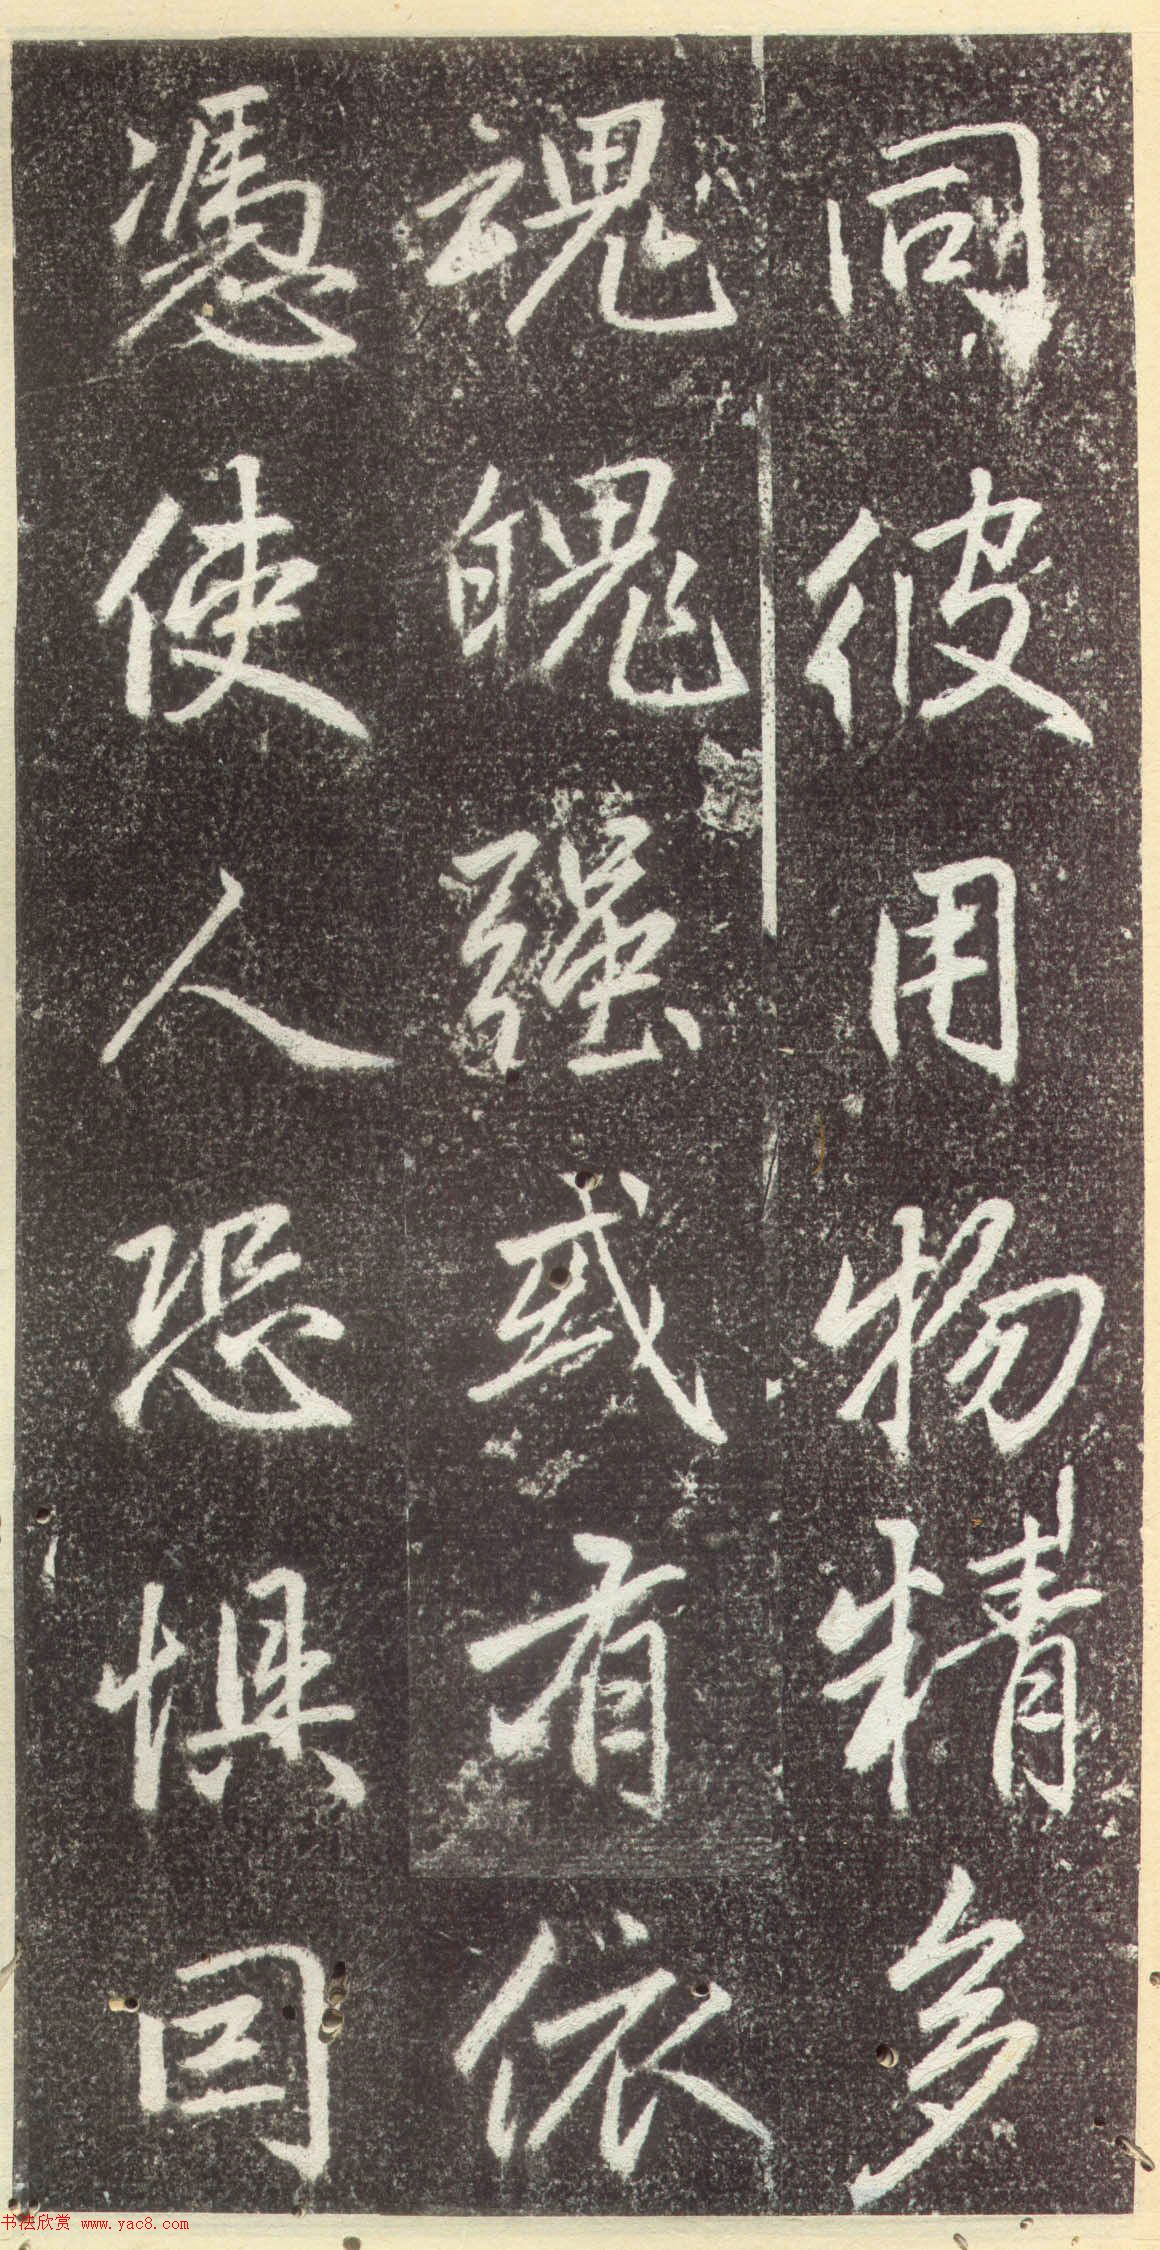 同彼用物精多
魂魄强或有依
憑使人恐惧因
书法欣赏 www.yac8.com